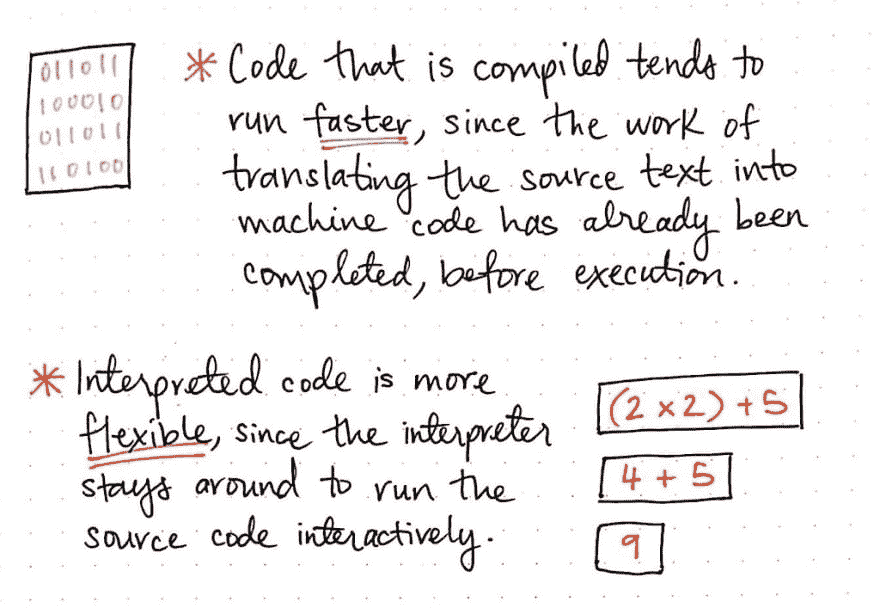 011011
100010
011011
110100
* Code that is compiled tends to
run faster, since the work of
translating the source text into
machine code has already been
completed, before execution.
* Interpreted code is more
flexible, since the interpreter
stays around to run the
source code interactively.
(2 x 2) + 5
4 + 5
9